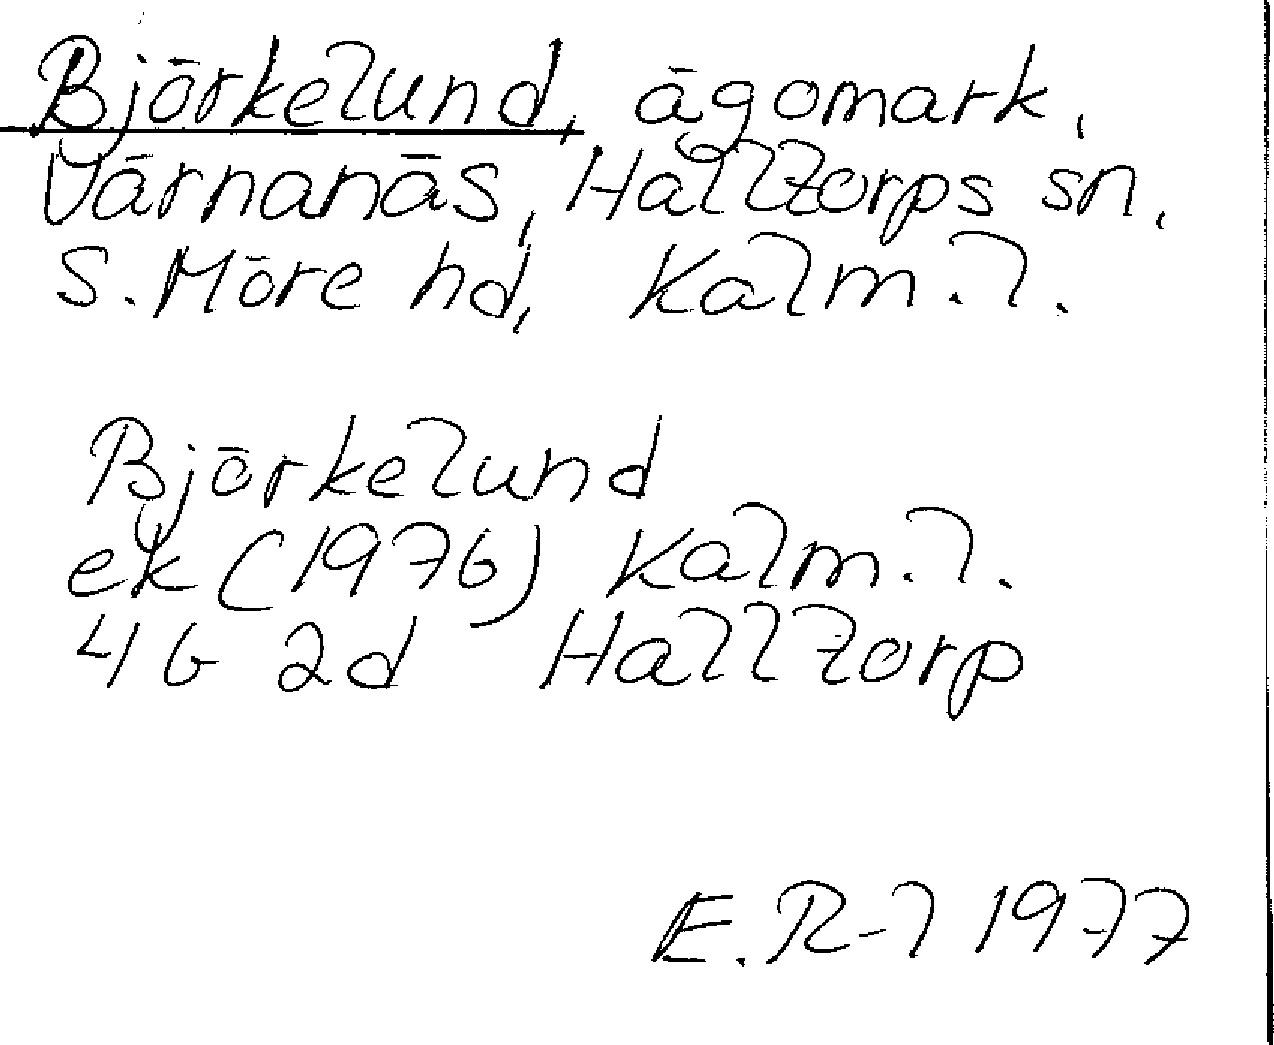 Björkelund, ägomark,
Värnanäs, Halltorps sn,
S. Möre hd, Kalm. l.
Björkelund
ek (1976) Kalm. l.
4G 2d Halltorp
E. R-l 1977